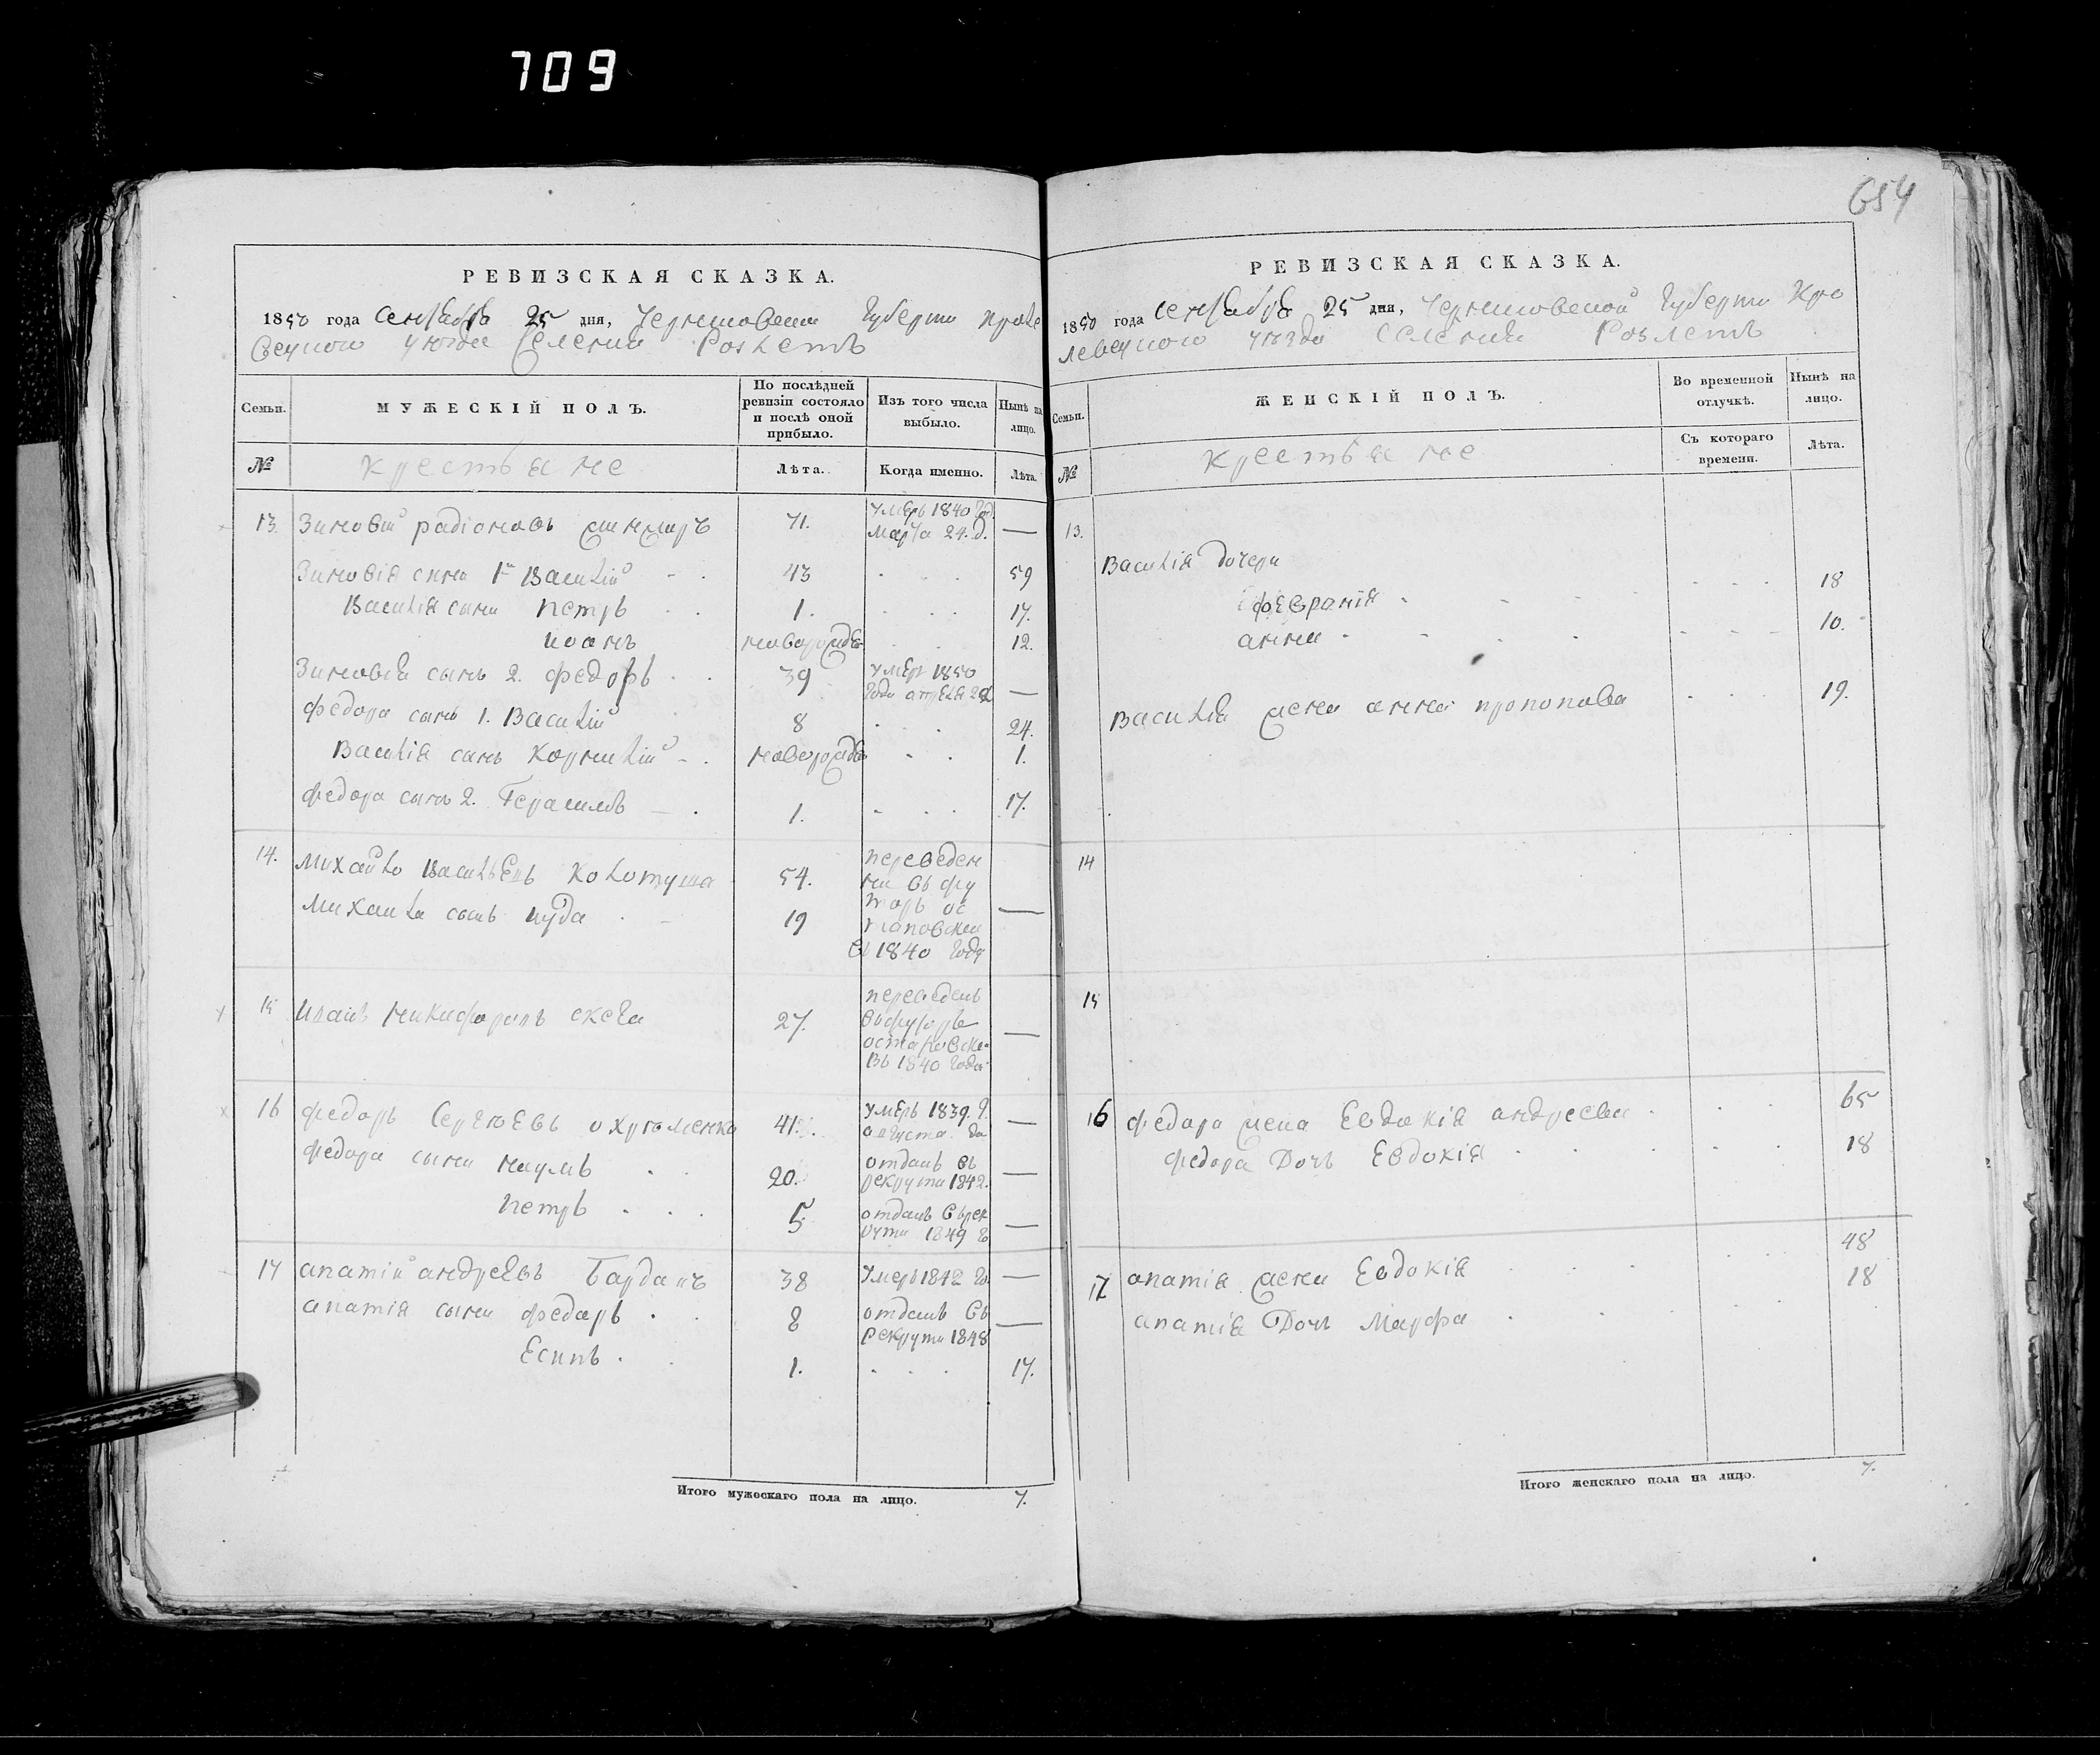 709
654
РЕВИЗСКАЯ СКАЗКА.
1850 года Сентября 25 дня, Черниговской Губерти Кроле
вецкого уезда Селении Розлетъ
Семьи. МУЖЕСКІЙ ПОЛЪ. По послѣдней ревизіи состояло и послѣ оной прибыло. Изъ того числа выбыло. Нынѣ на лицо.
№ крестьяне Лѣта. Когда именно. Лѣта.
13. Зиновій радіоновъ 71. умеръ 1840 год
марта 24. д. —
Зиновія сыни 1й Василій 43 59
Василія сыни петръ 1. 17.
иоанъ новорожде 12.
Зиновія сынъ 2. федоръ 39 умеръ 1850
года апреля —
федора сынъ 1. Василій 8 24.
Василія синъ Корнилій новорожде 1.
федора сынъ 2. Герасимъ 1. 17.
14. михайло васильевъ Колотуша 54. переведен
ни въ фу
михаила сынъ иуда 19 торъ ос
таповски —
въ 1840 года
15 иванъ никифоровъ 27. переведенъ
въ футоръ
—
въ 1840 года
16 федоръ Сергѣевъ охрѣменко 41. умеръ 1839. г.
августа —
федора сыни наумъ 20. отданъ въ
рекрути 1842. —
петръ 5 отданъ въ рек
рути 1849 —
17 апатій андреевъ Барданъ 38 умеръ 1842 го —
апатія сыни федоръ 8 отданъ въ
рекрути 1848 —
Есипъ 1. 17.
Итого мужескаго пола на лицо. 7.
РЕВИЗСКАЯ СКАЗКА.
1850 года Сентября 25 дня, Черниговской Губерти Кро
левецкого уезда Селении Розлетъ
Семьи. ЖЕНСКІЙ ПОЛЪ. Во временной отлучкѣ. Нынѣ на лицо.
№ крестьяне Съ котораго времени. Лѣта.
13.
Василія дочери
февронія 18
анна 10.
Василія жена анна прокопова 19.
14
15
16 федора жена Евдокія андреева 65
федора Дочь Евдокія 18
17 апатія жена Евдокія 48
апатія Дочь Марфа 18
Итого женскаго пола на лицо. 7.